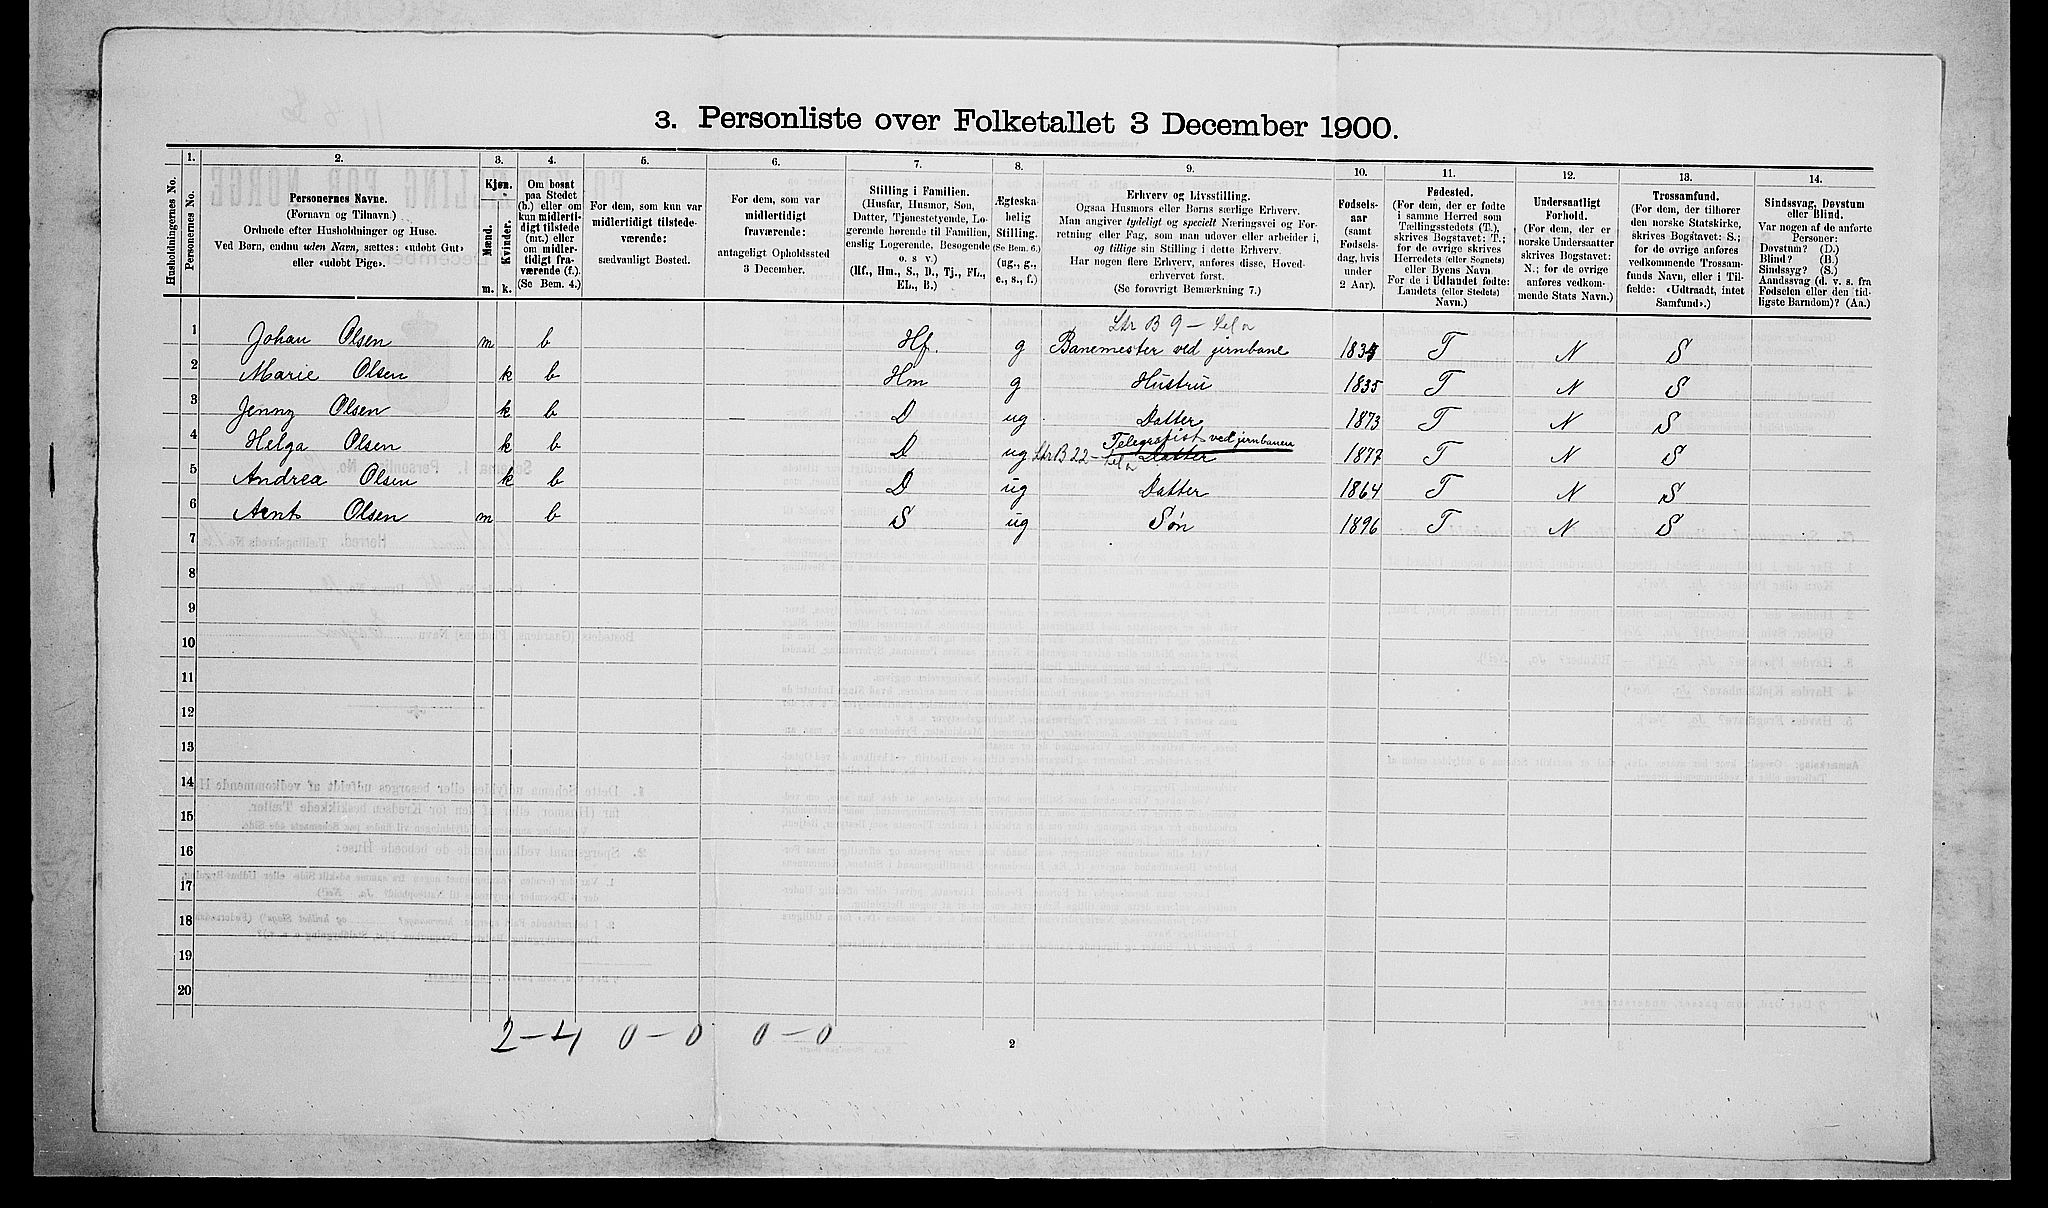 3. Personliste over Folketallet 3 December 1900.
Husholdningernes No.
1. Personernes No.
2. Personernes Navne.
(Fornavn og Tilnavn.)
Ordnede efter Husholdninger og Huse.
Ved Børn, endnu uden Navn, sættes: «udøbt Gut»
eller «udøbt Pige».
3. Kjøn.
Mænd. m.
Kvinder. k.
4. Om bosat
paa Stedet
(b.) eller om
kun midlerti-
digt tilstede
(mt.) eller
om midler-
tidigt fra-
værende (f.).
(Se Bem. 4.)
5. For dem, som kun var
midlertidigt tilstede-
værende:
sædvanligt Bosted.
6. For dem, som var
midlertidigt
fraværende:
antageligt Opholdssted
3 December.
7. Stilling i Familien.
(Husfar, Husmor, Søn,
Datter, Tjenestetyende, Lo-
gerende hørende til Familien,
enslig Logerende, Besøgende
o. s v.)
(Hf., Hm., S., D., Tj., FL.,
EL., B.)
8. Ægteska-
belig
Stilling.
(Se Bem. 6.)
(ug., g.,
e., s., f.)
9. Erhverv og Livsstilling.
Ogsaa Husmors eller Børns særlige Erhverv.
Man angiver tydeligt og specielt Næringsvei og For-
retning eller Fag, som man udøver eller arbeider i,
og tillige sin Stilling i dette Erhverv.
Har nogen flere Erhverv, anføres disse, Hoved-
erhvervet først.
(Se forøvrigt Bemærkning 7.)
10. Fødsels-
aar
(samt
Fødsels-
dag, hvis
under
2 Aar).
11. Fødested.
(For dem, der er fødte
i samme Herred som
Tællingsstedets (T.),
skrives Bogstavet: T.;
for de øvrige skrives
Herredets (eller Sognets)
eller Byens Navn
For de i Udlandet fødte:
Landets (eller Stedets)
Navn.)
12. Undersaatligt
Forhold.
(For dem, der er
norske Undersaatter
skrives Bogstavet:
N.; for de øvrige
anføres vedkom-
mende Stats Navn.)
13. Trossamfund.
(For dem, der tilhører
den norske Statskirke,
skrives Bogstavet: S.;
for de øvrige anføres
vedkommende Trossam-
funds Navn, eller i Til-
fælde: «Udtraadt, intet
Samfund».)
14. Sindssvag, Døvstum
eller Blind.
Var nogen af de anførte
Personer:
Døvstum? (D.)
Blind? (B.)
Sindssyg? (S.)
Aandssvag (d. v. s. fra
Fødselen eller den tid-
ligste Barndom)? (Aa.)
1 Johan Olsen m b Hf. g Banemester ved jernbane T N S
2 Marie Olsen k b Hm g Hustru 1835 T N S
3 Jenny Olsen k b D ug Datter 1873 T N S
Telegrafist ved jernbanen
4 Helga Olsen k b D ug Datter 1877 T N S
5 Andrea Olsen k b D ug Datter 1864 T N S
6 Arnt Olsen m b S ug Søn 1896 T N S
7
8
9
10
11
12
13
14
15
16
17
18
19
20
2-4 0-0 0-0
2